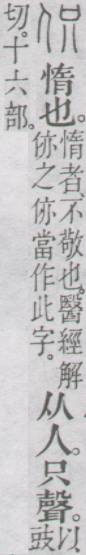 伿 惰也。惰者、不敬也。醫經解㑊之㑊當作此字。从人。只聲。以豉
切。十六部。